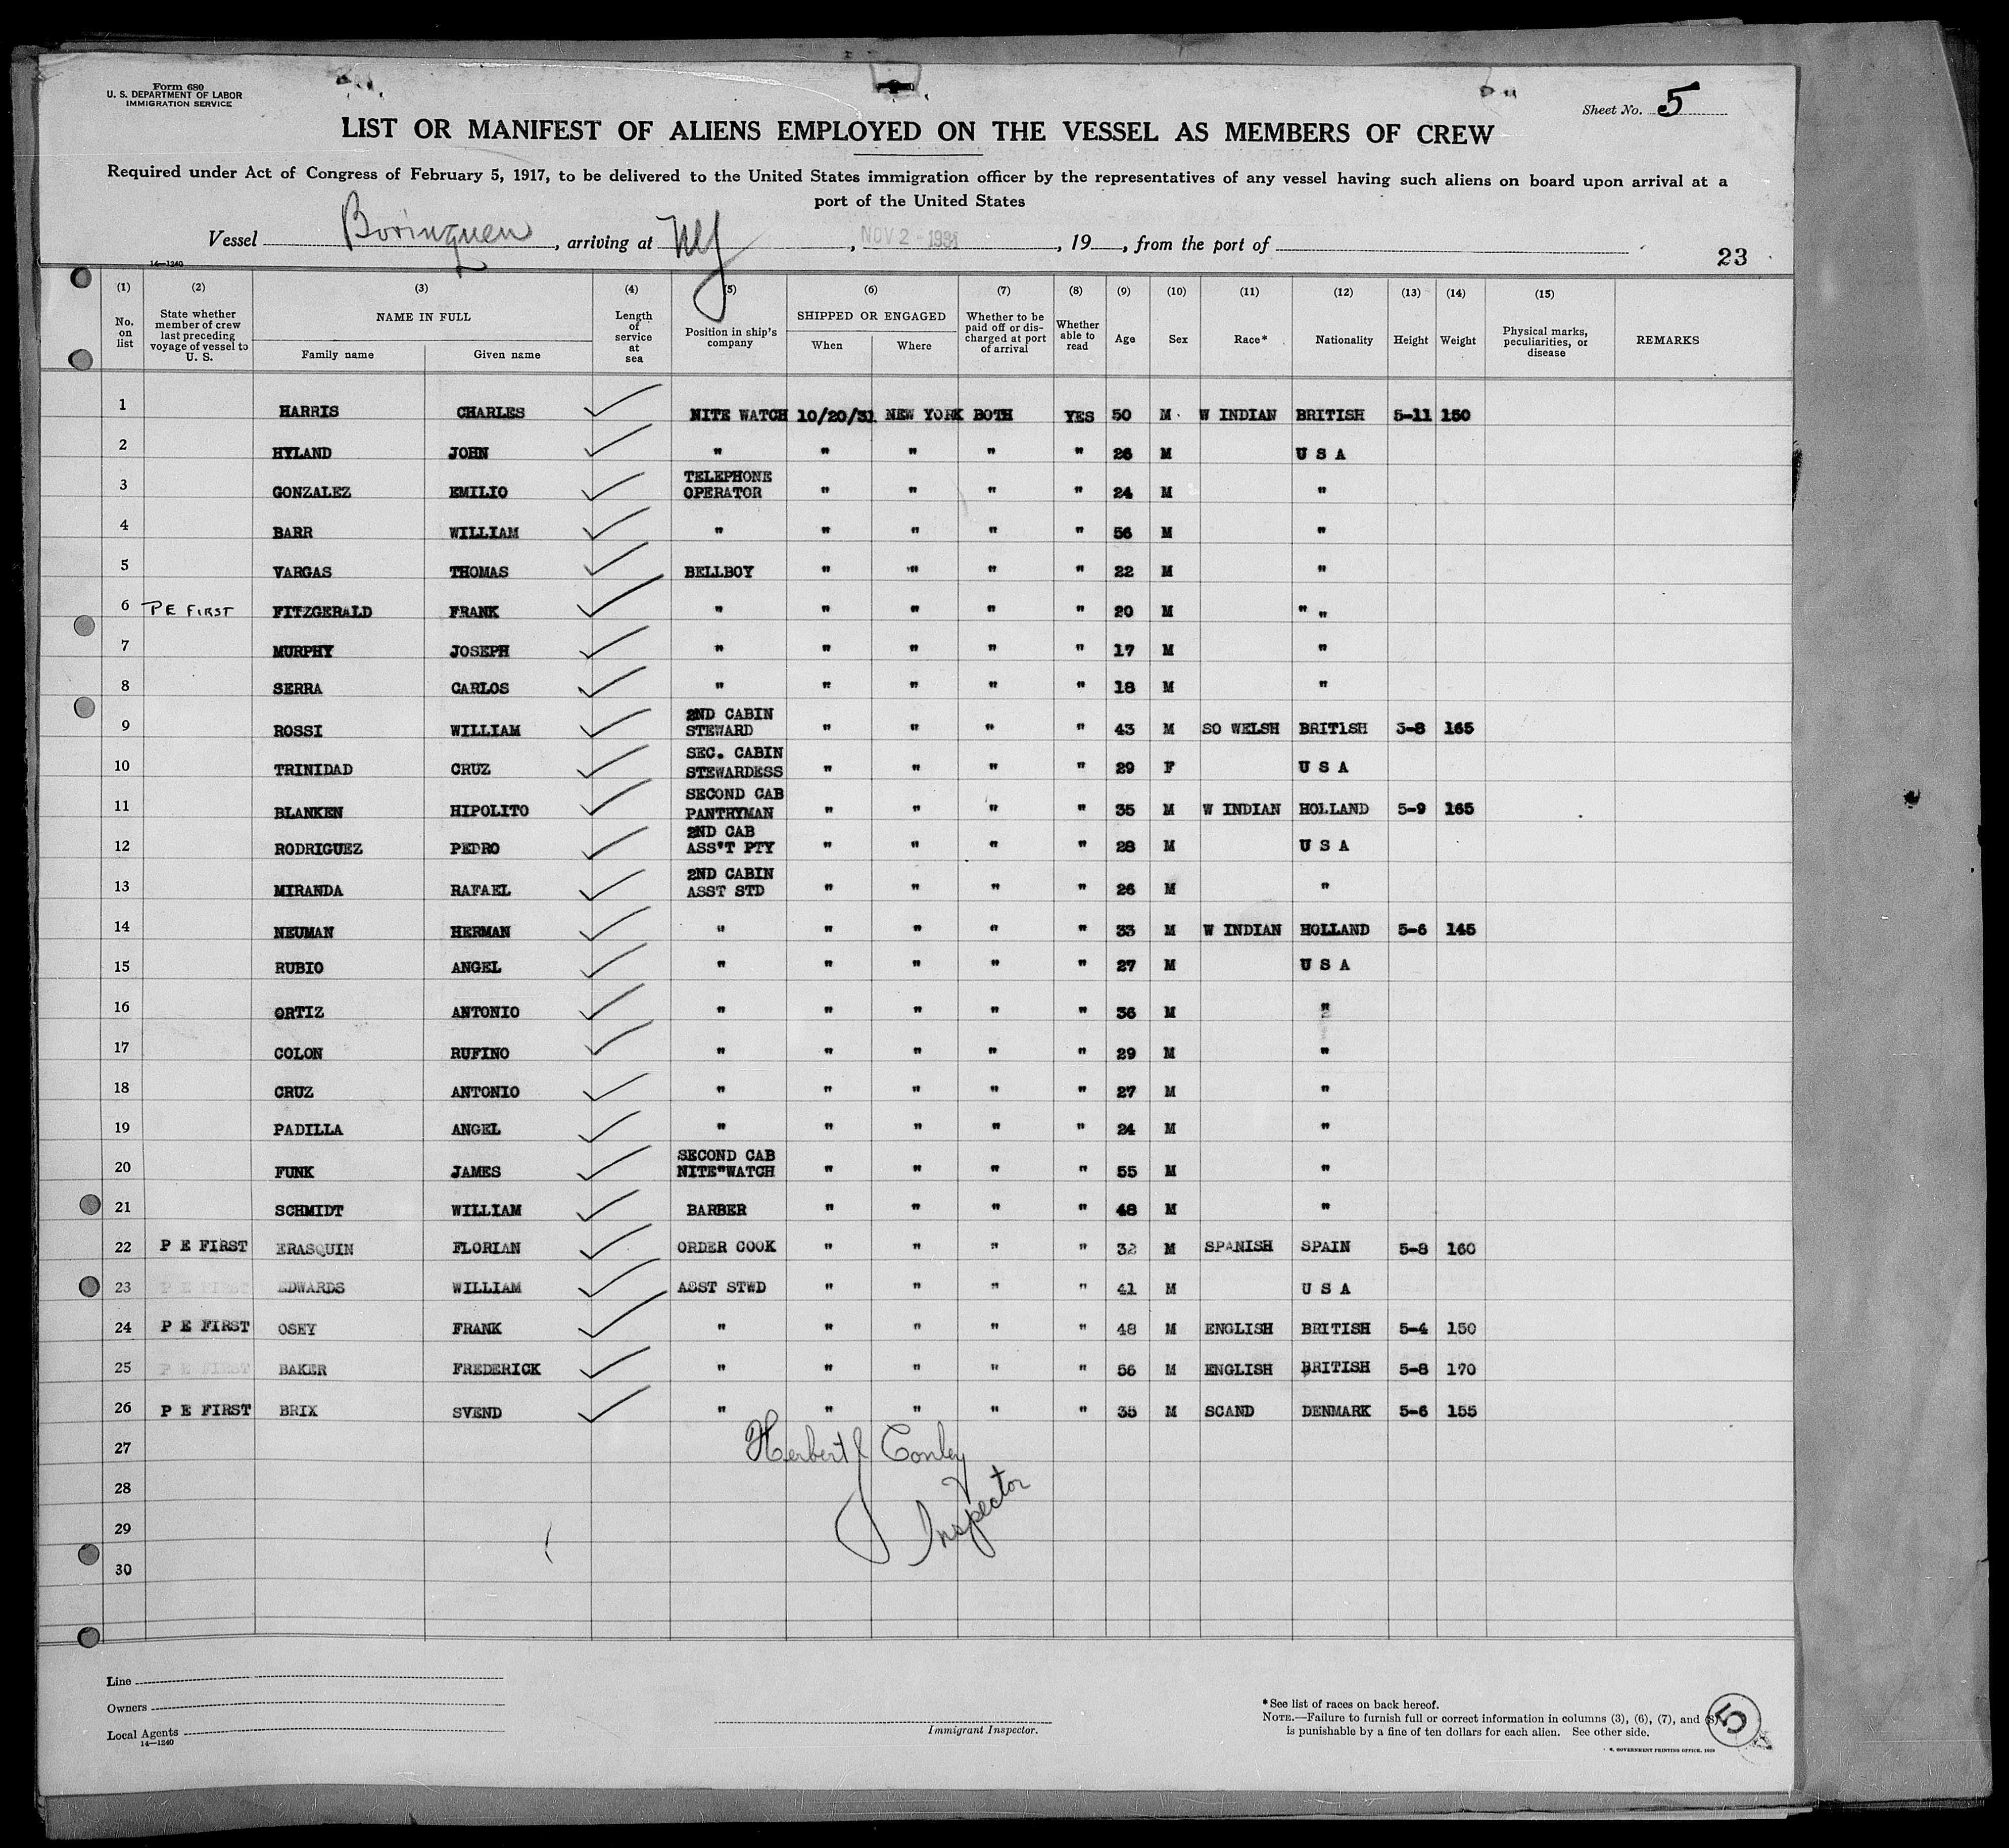 Form 680
U. S. DEPARTMENT OF LABOR
IMMIGRATION SERVICE
Sheet No. 5
LIST OR MANIFEST OF ALIENS EMPLOYED ON THE VESSEL AS MEMBERS OF CREW
Required under Act of Congress of February 5, 1917, to be delivered to the United States immigration officer by the representatives of any vessel having such aliens on board upon arrival at a
port of the United States
Vessel Borinquen, arriving at NY, NOV 2 - 1931, 19, from the port of
23
14—1240
(1) (2) (3) (4) (5) (6) (7) (8) (9) (10) (11) (12) (13) (14) (15)
No. on list
State whether member of crew last preceding voyage of vessel to U. S.
NAME IN FULL
Family name Given name
Length of service at sea
Position in ship's company
SHIPPED OR ENGAGED
When Where
Whether to be paid off or discharged at port of arrival
Whether able to read
Age Sex Race* Nationality Height Weight
Physical marks, peculiarities, or disease
REMARKS
1 HARRIS CHARLES NITE WATCH 10/20/31 NEW YORK BOTH YES 50 M W INDIAN BRITISH 5-11 150
2 HYLAND JOHN " " " " " 26 M U S A
3 GONZALEZ EMILIO TELEPHONE OPERATOR " " " " 24 M "
4 BARR WILLIAM " " " " " 56 M "
5 VARGAS THOMAS BELLBOY " " " " 22 M "
6 P E FIRST FITZGERALD FRANK " " " " " 20 M " "
7 MURPHY JOSEPH " " " " " 17 M "
8 SERRA CARLOS " " " " " 18 M "
9 ROSSI WILLIAM 2ND CABIN STEWARD " " " " 43 M SO WELSH BRITISH 5-8 165
10 TRINIDAD CRUZ SEC. CABIN STEWARDESS " " " " 29 F U S A
11 BLANKEN HIPOLITO SECOND CAB PANTRYMAN " " " " 35 M W INDIAN HOLLAND 5-9 165
12 RODRIGUEZ PEDRO 2ND CAB ASS'T PTY " " " " 28 M U S A
13 MIRANDA RAFAEL 2ND CABIN ASST STD " " " " 26 M "
14 NEUMAN HERMAN " " " " " 33 M W INDIAN HOLLAND 5-6 145
15 RUBIO ANGEL " " " " " 27 M U S A
16 ORTIZ ANTONIO " " " " " 36 M "
17 COLON RUFINO " " " " " 29 M "
18 CRUZ ANTONIO " " " " " 27 M "
19 PADILLA ANGEL " " " " " 24 M "
20 FUNK JAMES SECOND CAB NITE"WATCH " " " " 55 M "
21 SCHMIDT WILLIAM BARBER " " " " 48 M "
22 P E FIRST ERASQUIN FLORIAN ORDER COOK " " " " 32 M SPANISH SPAIN 5-8 160
23 P E FIRST EDWARDS WILLIAM ASST STWD " " " " 41 M U S A
24 P E FIRST OSEY FRANK " " " " " 48 M ENGLISH BRITISH 5-4 150
25 P E FIRST BAKER FREDERICK " " " " " 56 M ENGLISH BRITISH 5-8 170
26 P E FIRST BRIX SVEND " " " " " 35 M SCAND DENMARK 5-6 155
27
28
29
30
Herbert J Conley
Inspector
Line
Owners
Local Agents
14—1240
Immigrant Inspector.
*See list of races on back hereof.
NOTE.—Failure to furnish full or correct information in columns (3), (6), (7), and (8)
is punishable by a fine of ten dollars for each alien. See other side.
GOVERNMENT PRINTING OFFICE
5